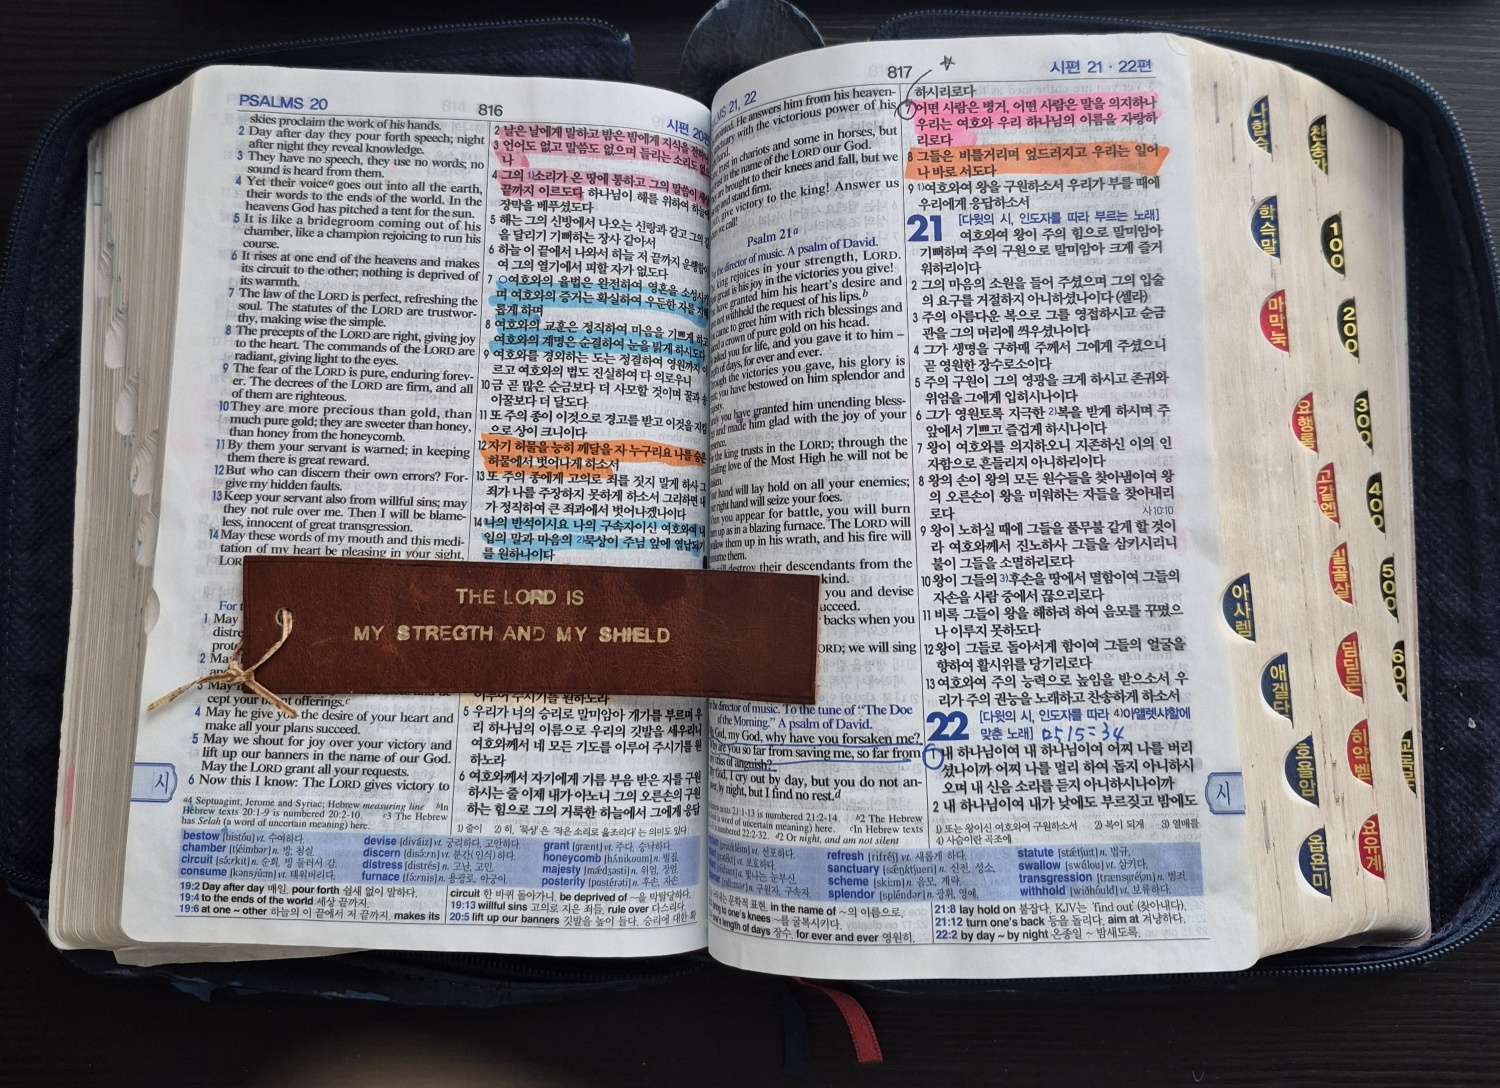 PSALMS 20
816
시편 20편
skies proclaim the work of his hands.
2 Day after day they pour forth speech; night
after night they reveal knowledge.
3 They have no speech, they use no words; no
sound is heard from them.
4 Yet their voiceᵃ goes out into all the earth,
their words to the ends of the world. In the
heavens God has pitched a tent for the sun.
5 It is like a bridegroom coming out of his
chamber, like a champion rejoicing to run his
course.
6 It rises at one end of the heavens and makes
its circuit to the other; nothing is deprived of
its warmth.
7 The law of the LORD is perfect, refreshing the
soul. The statutes of the LORD are trustwor-
thy, making wise the simple.
8 The precepts of the LORD are right, giving joy
to the heart. The commands of the LORD are
radiant, giving light to the eyes.
9 The fear of the LORD is pure, enduring forev-
er. The decrees of the LORD are firm, and all
of them are righteous.
10 They are more precious than gold, than
much pure gold; they are sweeter than honey,
than honey from the honeycomb.
11 By them your servant is warned; in keeping
them there is great reward.
12 But who can discern their own errors? For-
give my hidden faults.
13 Keep your servant also from willful sins; may
they not rule over me. Then I will be blame-
less, innocent of great transgression.
14 May these words of my mouth and this medi-
tation of my heart be pleasing in your sight,
For
1 May
distre
prote
2 Ma
3 May
cept your offerings.ᶜ
4 May he give you the desire of your heart and
make all your plans succeed.
5 May we shout for joy over your victory and
lift up our banners in the name of our God.
May the LORD grant all your requests.
6 Now this I know: The LORD gives victory to
시
2 날은 날에게 말하고 밤은 밤에게 지식을
3 언어도 없고 말씀도 없으며 들리는 소리도
나
4 그의 1)소리가 온 땅에 통하고 그의 말씀이
끝까지 이르도다 하나님이 해를 위하여
장막을 베푸셨도다
5 해는 그의 신방에서 나오는 신랑과 같고 그의
을 달리기 기뻐하는 장사 같아서
6 하늘 이 끝에서 나와서 하늘 저 끝까지
여 그의 열기에서 피할 자가 없도다
7 여호와의 율법은 완전하여 영혼을
며 여호와의 증거는 확실하여 우둔한 자를
롭게 하며
8 여호와의 교훈은 정직하여 마음을 기쁘게 하고
여호와의 계명은 순결하여 눈을 밝게 하시도다
9 여호와를 경외하는 도는 정결하여 영원까지
르고 여호와의 법도 진실하여 다 의로우니
10 금 곧 많은 순금보다 더 사모할 것이며 꿀과
이꿀보다 더 달도다
11 또 주의 종이 이것으로 경고를 받고 이것을
으로 상이 크니이다
12 자기 허물을 능히 깨달을 자 누구리요 나를 숨은
허물에서 벗어나게 하소서
13 또 주의 종에게 고의로 죄를 짓지 말게 하사
죄가 나를 주장하지 못하게 하소서 그리하면
가 정직하여 큰 죄과에서 벗어나겠나이다
14 나의 반석이시요 나의 구속자이신 여호와여
입의 말과 마음의 2)묵상이 주님 앞에 열납되기
를 원하나이다
THE LORD IS
MY STREGTH AND MY SHIELD
이루어 주시기를 원하노라
5 우리가 너의 승리로 말미암아 개가를 부르며
리 하나님의 이름으로 우리의 깃발을 세우리니
여호와께서 네 모든 기도를 이루어 주시기를 원
하노라
6 여호와께서 자기에게 기름 부음 받은 자를 구원
하시는 줄 이제 내가 아노니 그의 오른손의 구원
하는 힘으로 그의 거룩한 하늘에서 그에게 응답
ᵃ4 Septuagint, Jerome and Syriac; Hebrew measuring line ᵇIn
Hebrew texts 20:1-9 is numbered 20:2-10. ᶜ3 The Hebrew
has Selah (a word of uncertain meaning) here.
1) 줄이 2) 히, '묵상'은 '작은 소리로 읊조리다'는 의미도 있다
bestow [bistóu] vt. 수여하다.
chamber [tʃéimbər] n. 방, 침실.
circuit [sə́ːrkit] n. 순회, 빙 둘러서 감.
consume [kənsjúːm] vt. 태워버리다.
devise [diváiz] vt. 궁리하다, 고안하다.
discern [disə́ːrn] vt. 분간(인식)하다.
distress [distrés] n. 고난, 고민.
furnace [fə́ːrnis] n. 용광로, 아궁이
grant [grænt] vt. 주다, 승낙하다.
honeycomb [hʌ́nikoum] n. 벌집.
majesty [mǽdʒəsti] n. 위엄, 장엄.
posterity [pɑstérəti] n. 후손, 자손
19:2 Day after day 매일, pour forth 쉴새 없이 말하다.
19:4 to the ends of the world 세상 끝까지.
19:6 at one ~ other 하늘의 이 끝에서 저 끝까지, makes its
circuit 한 바퀴 돌아가니, be deprived of ~을 박탈당하다.
19:13 willful sins 고의로 지은 죄들, rule over 다스리다.
20:5 lift up our banners 깃발을 높이 들다.
PSALMS 21, 22
817
시편 21 · 22편
He answers him from his heaven-
with the victorious power of his
trust in chariots and some in horses, but
in the name of the LORD our God.
brought to their knees and fall, but we
and stand firm.
give victory to the king! Answer us
we call!
Psalm 21ᵃ
the director of music. A psalm of David.
king rejoices in your strength, LORD.
great is his joy in the victories you give!
have granted him his heart's desire and
withheld the request of his lips.ᵇ
came to greet him with rich blessings and
a crown of pure gold on his head.
asked you for life, and you gave it to him –
of days, for ever and ever.
through the victories you gave, his glory is
you have bestowed on him splendor and
you have granted him unending bless-
and made him glad with the joy of your
the king trusts in the LORD; through the
love of the Most High he will not be
hand will lay hold on all your enemies;
right hand will seize your foes.
you appear for battle, you will burn
up as in a blazing furnace. The LORD will
them up in his wrath, and his fire will
them.
destroy their descendants from the
kind.
you and devise
succeed.
backs when you
LORD; we will sing
director of music. To the tune of “The Doe
of the Morning.” A psalm of David.
God, my God, why have you forsaken me?
are you so far from saving me, so far from
of anguish?
God, I cry out by day, but you do not an-
by night, but I find no rest.ᵈ
하시리로다
7 어떤 사람은 병거, 어떤 사람은 말을 의지하나
우리는 여호와 우리 하나님의 이름을 자랑하
리로다
8 그들은 비틀거리며 엎드러지고 우리는 일어
나 바로 서도다
9 1)여호와여 왕을 구원하소서 우리가 부를 때에
우리에게 응답하소서
21 [다윗의 시, 인도자를 따라 부르는 노래]
여호와여 왕이 주의 힘으로 말미암아
기뻐하며 주의 구원으로 말미암아 크게 즐거
워하리이다
2 그의 마음의 소원을 들어 주셨으며 그의 입술
의 요구를 거절하지 아니하셨나이다 (셀라)
3 주의 아름다운 복으로 그를 영접하시고 순금
관을 그의 머리에 씌우셨나이다
4 그가 생명을 구하매 주께서 그에게 주셨으니
곧 영원한 장수로소이다
5 주의 구원이 그의 영광을 크게 하시고 존귀와
위엄을 그에게 입히시나이다
6 그가 영원토록 지극한 2)복을 받게 하시며 주
앞에서 기쁘고 즐겁게 하시나이다
7 왕이 여호와를 의지하오니 지존하신 이의 인
자함으로 흔들리지 아니하리이다
8 왕의 손이 왕의 모든 원수들을 찾아냄이여 왕
의 오른손이 왕을 미워하는 자들을 찾아내리
로다
사10:10
9 왕이 노하실 때에 그들을 풀무불 같게 할 것이
라 여호와께서 진노하사 그들을 삼키시리니
불이 그들을 소멸하리로다
10 왕이 그들의 3)후손을 땅에서 멸함이여 그들의
자손을 사람 중에서 끊으리로다
11 비록 그들이 왕을 해하려 하여 음모를 꾸몄으
나 이루지 못하도다
12 왕이 그들로 돌아서게 함이여 그들의 얼굴을
향하여 활시위를 당기리로다
13 여호와여 주의 능력으로 높임을 받으소서 우
리가 주의 권능을 노래하고 찬송하게 하소서
22 [다윗의 시, 인도자를 따라 4)아얠렛샤할에
맞춘 노래] 막15:34
1 내 하나님이여 내 하나님이여 어찌 나를 버리
셨나이까 어찌 나를 멀리 하여 돕지 아니하시
오며 내 신음 소리를 듣지 아니하시나이까
2 내 하나님이여 내가 낮에도 부르짖고 밤에도
시
texts 21:1-13 is numbered 21:2-14. ᵇ2 The Hebrew
(a word of uncertain meaning) here. ᶜIn Hebrew texts
numbered 22:2-32. ᵈ2 Or night, and am not silent
1) 또는 왕이신 여호와여 구원하소서 2) 복이 되게 3) 열매를
4) 사슴이란 곡조에
refresh [rifréʃ] vt. 새롭게 하다.
sanctuary [sǽŋktʃuèri] n. 신전, 성소
scheme [skiːm] n. 음모, 계략.
splendor [spléndər] n. 광휘, 영예.
statute [stǽtʃuːt] n. 법규.
swallow [swɑ́lou] vt. 삼키다.
transgression [trænsgréʃən] n. 범죄
withhold [wiðhóuld] vt. 보류하다.
in the name of ~의 이름으로,
to one's knees ~를 굴복시키다.
length of days 장수, for ever and ever 영원히.
21:8 lay hold on 붙잡다, KJV는 'find out' (찾아내다).
21:12 turn one's back 등을 돌리다, aim at 겨냥하다.
22:2 by day ~ by night 온종일 ~ 밤새도록.
나합습
학슥말
마막눅
요행롬
고갈엡
빌골살
딤딛몬
히약벧
요유계
아사렘
애겔다
호욜암
옵욘미
찬송가
100
200
300
400
500
600